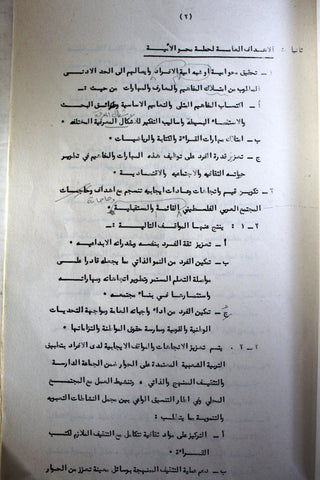 (٢)
ثانيا : الاهداف العامة لخطة محو الأمية
١ - تحقيق محو امية الافراد وايصالهم الى الحد الادنى
المطلوب من امتلاك المفاهيم والمعارف والمهارات من حيث :-
أ - اكتساب المفاهيم التي والتعاميم الاساسية وطرائق البحث
والاستقصاء البسيطة واساليب التفكير المختلفة ٠
ب - امتلاك مهارات القراءة والكتابة والرياضيات ٠
ج - تعزيز قدرة الفرد على توظيف هذه المهارات والمفاهيم في تطوير
حياته الثقافية والاجتماعية والاقتصادية ٠
٢ - تكوين قيم واتجاهات وعادات ايجابية تنسجم مع اهداف وحاجات
المجتمع العربي الفلسطيني القائمة والمستقبلية ٠
٢ - ١ : ينتج عنها المواقف التالية :
أ - تعزيز ثقة الفرد بنفسه وبقدراته الابداعية ٠
ب - تمكين الفرد من النمو الذاتي ما يجعله قادرا على
مواصلة التعلم المستمر وتطوير اتجاهاته ومهاراته
واستثمارها في بناء مجتمعه ٠
ج - تمكين الفرد من اداء واجباته العامة ومواجهة التحديات
الوطنية والقومية وممارسة حقوق المواطنة والتزاماتها ٠
٢ - ٢ ٠ يتم تعزيز الاتجاهات والمواقف الايجابية لدى الافراد بتطبيق
التربية الشعبية المعتمدة على الحوار ضمن الجماعة الدارسة
والتثقيف المنهج والذاتي ، وتنشيط العمل مع المجتمع
المحلي وفي اطار التنسيق الواعي بين مجمل النشاطات التعبوية
والتنموية ما يتطلب :
أ - التركيز على مواد ثقافية تتكامل مع التثقيف الملازم لكتب
القراءة ٠
ب - دعم عملية التثقيف المنهجة بوسائل معينة تعزز من الحوار